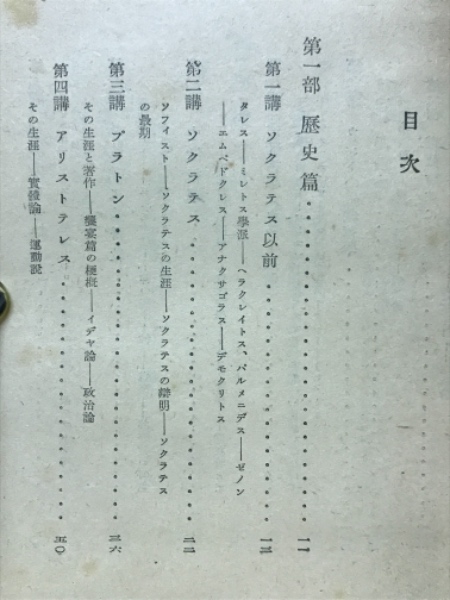 目次
第一部 歷史篇・・・・・・・・・・・・・・・・・・一一
第一講 ソクラテス以前・・・・・・・・・・・・・一三
タレス――ミレトス學派――ヘラクレイトス、パルメニデス――ゼノン
――エムペドクレス――アナクサゴラス――デモクリトス
第二講 ソクラテス・・・・・・・・・・・・・・・二二
ソフィスト――ソクラテスの生涯――ソクラテスの辯明――ソクラテス
の最期
第三講 プラトン・・・・・・・・・・・・・・・・三六
その生涯と著作――饗宴篇の梗概――イデヤ論――政治論
第四講 アリストテレス・・・・・・・・・・・・・五〇
その生涯――實體論――運動說